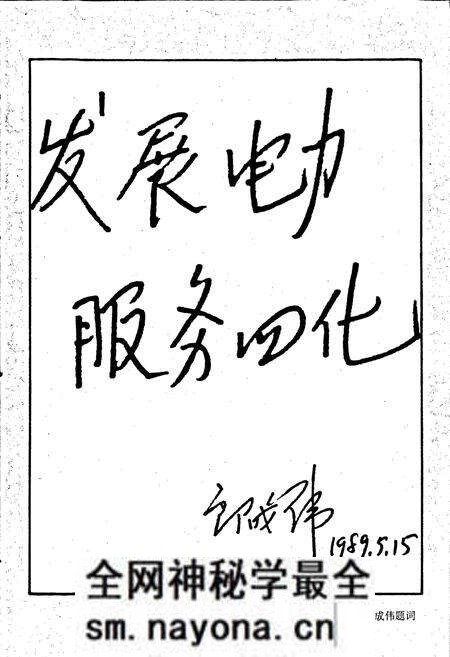 发展电力
服务四化
成伟
1989.5.15
全网神秘学最全
sm.nayona.cn
成伟题词